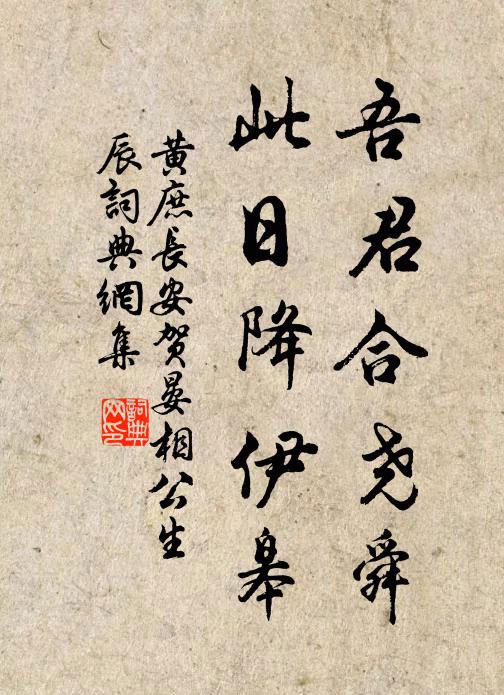 吾君合尧舜
此日降伊皋
黄庶长安贺晏相公生
辰詞典網集
詞典网印